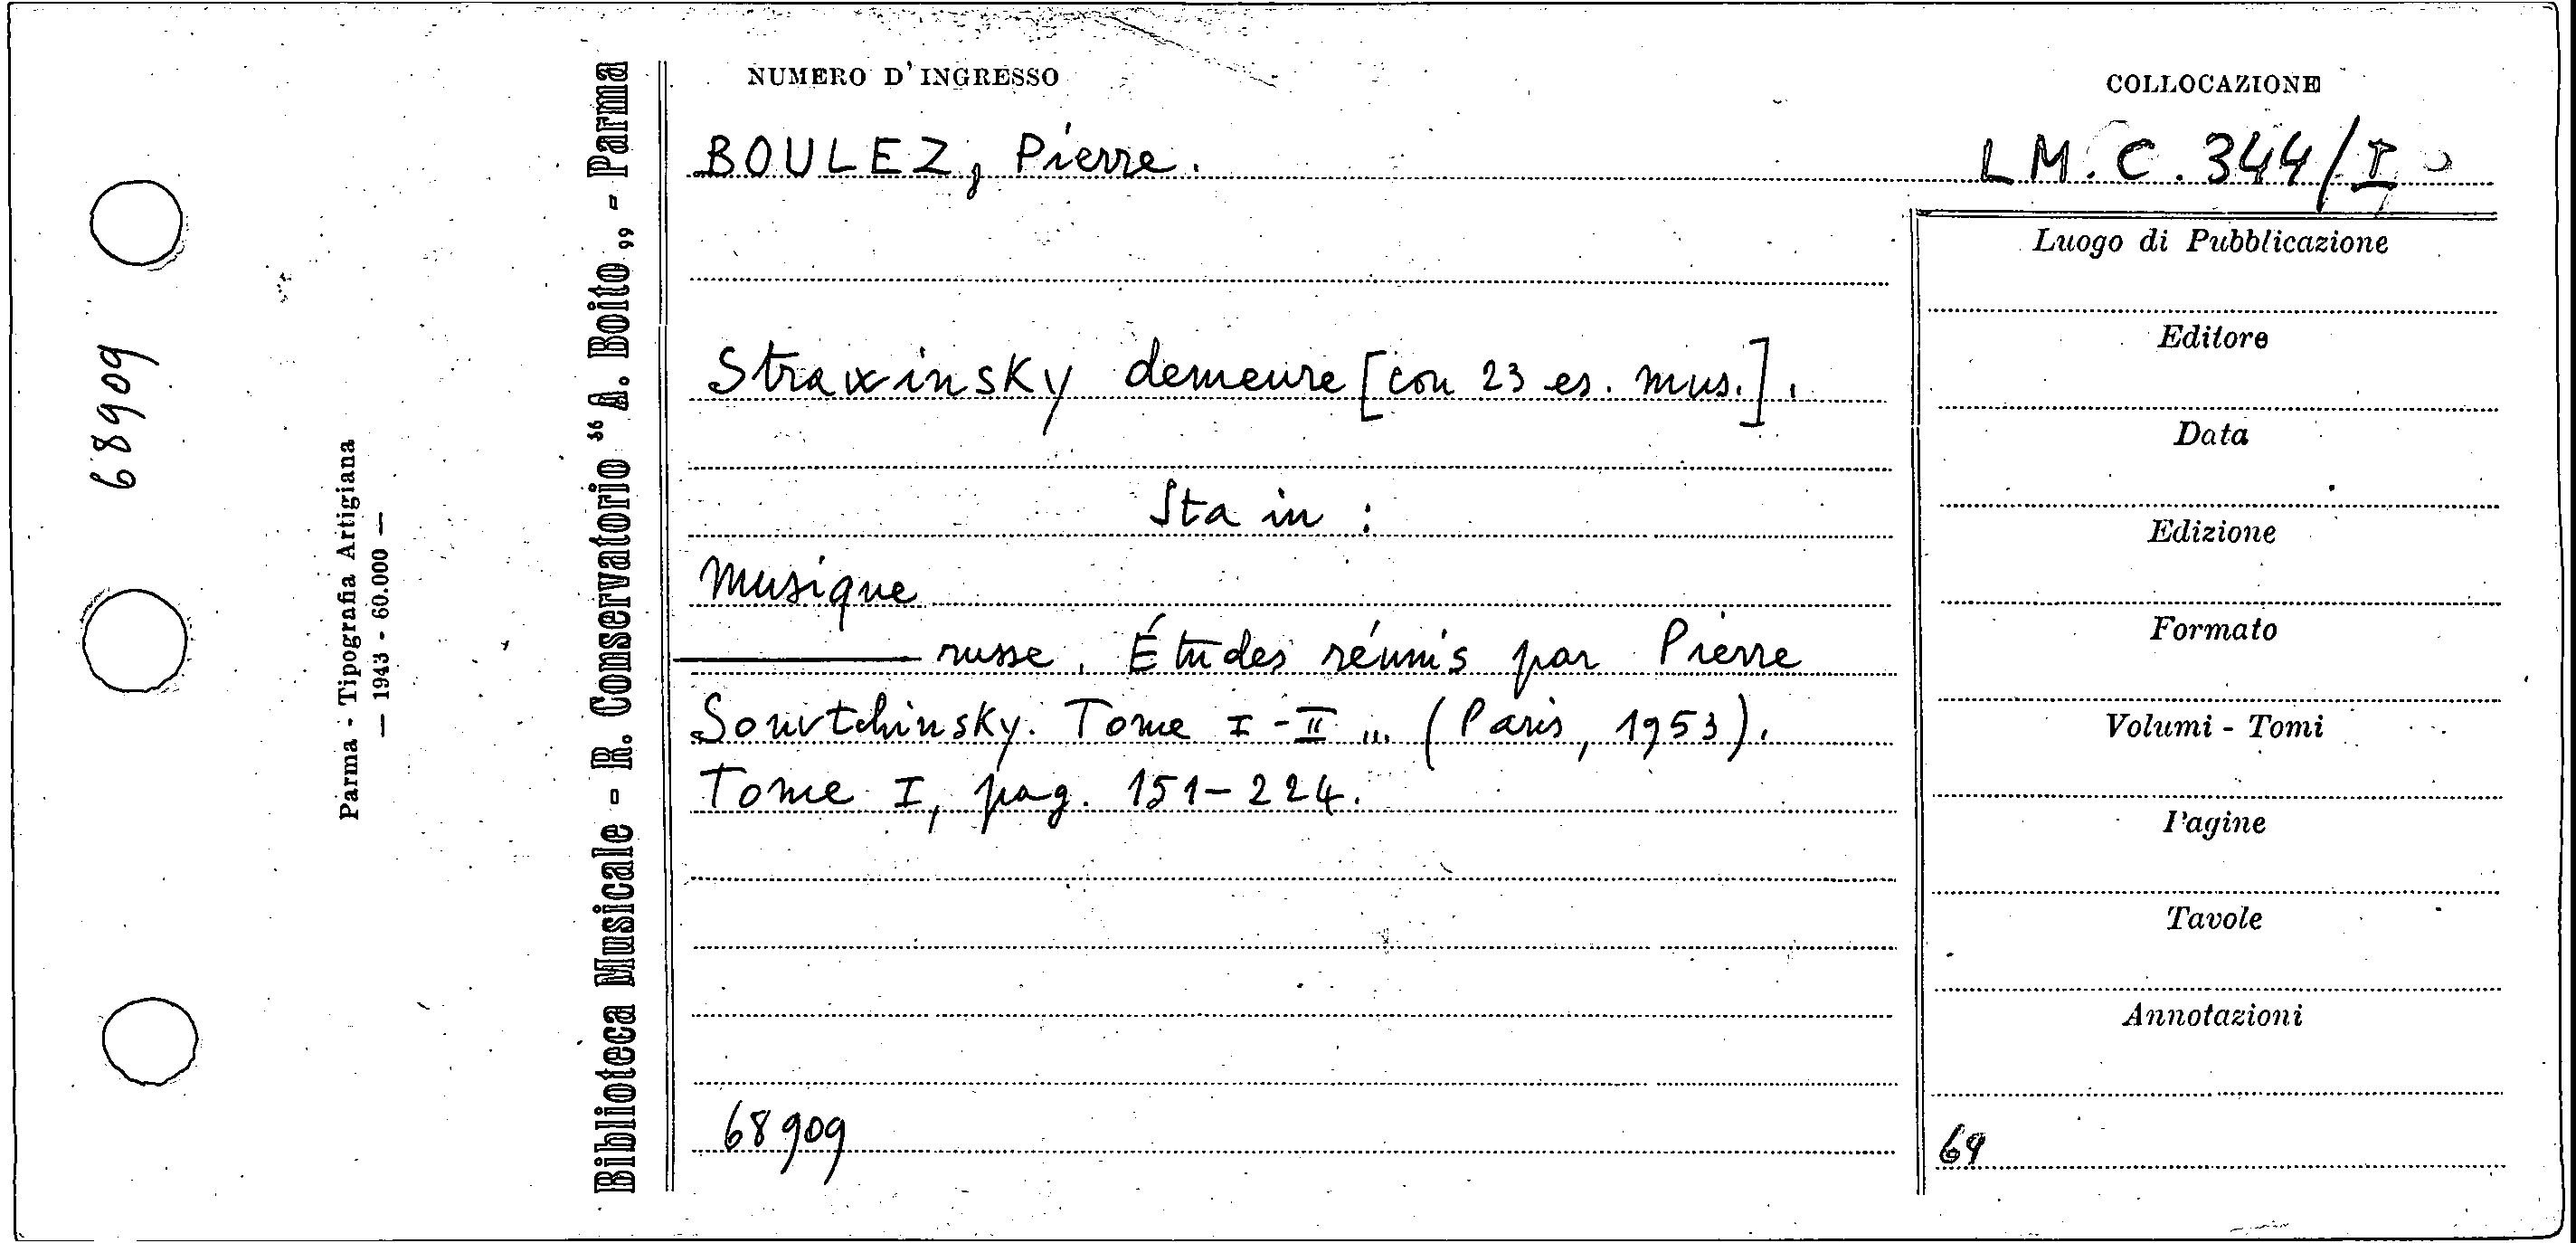 NUMERO D'INGRESSO
COLLOCAZIONE
BOULEZ, Pierre.
LM. C. 344/I
Strawinsky demeure [con 23 es. mus.].
Sta in:
Musique
——— russe. Études réunis par Pierre
Souvtchinsky. Tome I-II ... (Paris, 1953).
Tome I, pag. 151-224.
68909
Luogo di Pubblicazione
Editore
Data
Edizione
Formato
Volumi - Tomi
Pagine
Tavole
Annotazioni
69
Biblioteca Musicale - R. Conservatorio "A. Boito„ - Parma
Parma - Tipografia Artigiana
— 1943 - 60.000 —
68909